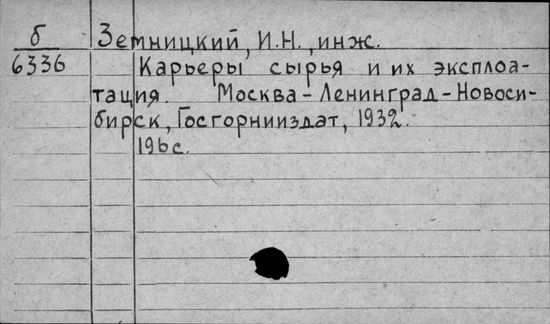 б Земницкий, И.Н., инж.
6336 Карьеры сырья и их эксплоа-
тация. Москва-Ленинград-Новоси-
бирск, Госгорниздат, 1932.
196с.